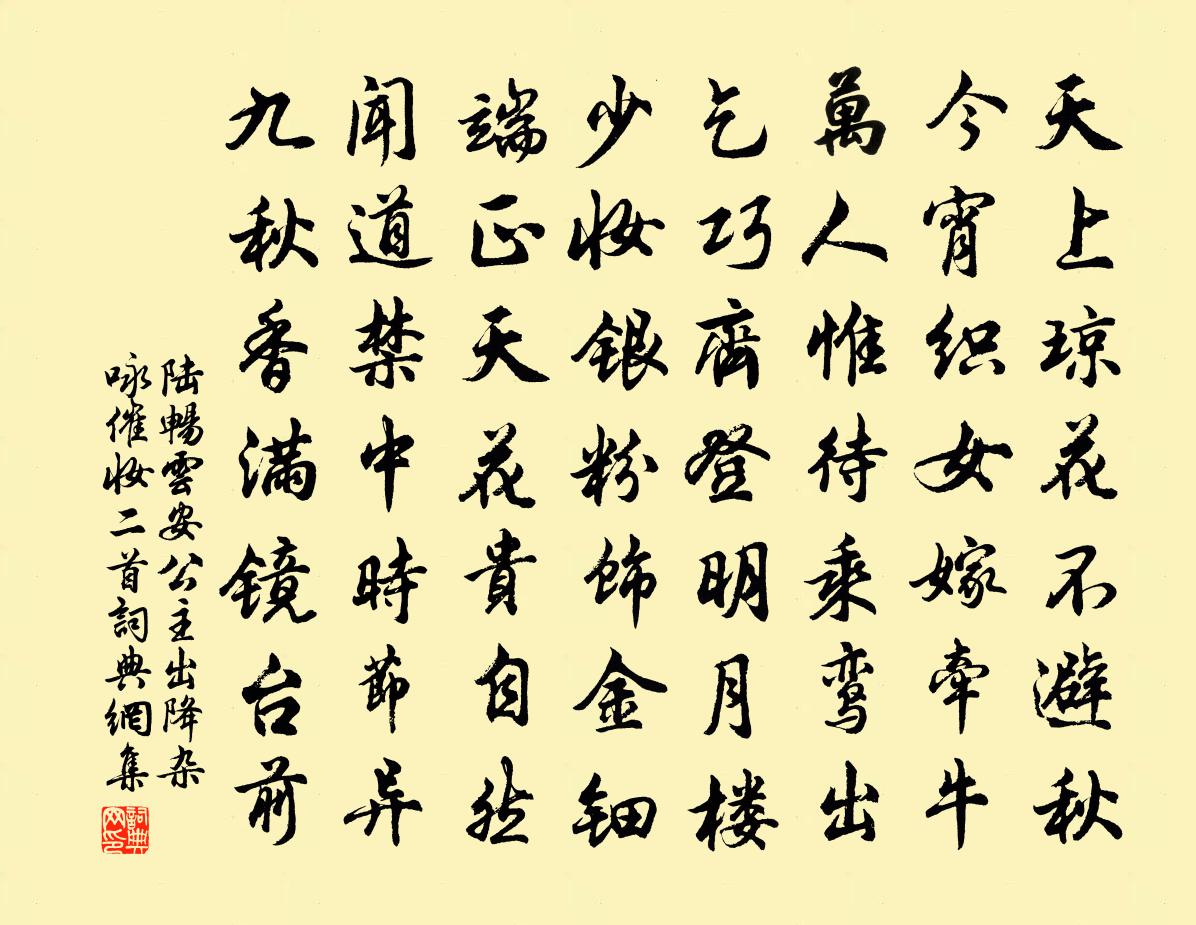 天上琼花不避秋
今宵织女嫁牵牛
萬人惟待乘鸾出
乞巧齊登明月楼
少妆银粉饰金钿
端正天花貴自然
闻道禁中時節异
九秋香满镜台前
陆暢雲安公主出降杂
咏催妆二首詞典網集
詞典
网印